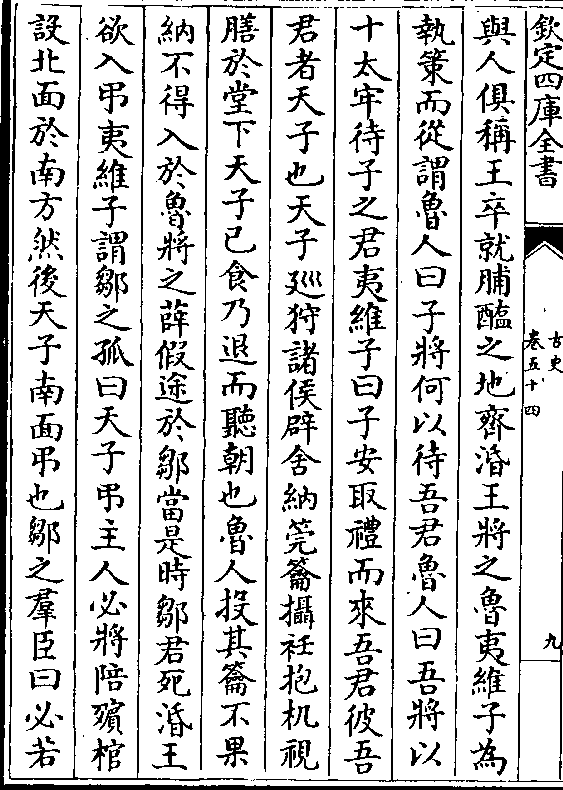 欽定四庫全書
古史
卷五十四
九
與人俱稱王卒就脯醢之地齊湣王將之魯夷維子為
執策而從謂魯人曰子將何以待吾君魯人曰吾將以
十太牢待子之君夷維子曰子安取禮而來吾君彼吾
君者天子也天子廵狩諸侯辟舍納筦籥攝衽抱机視
膳於堂下天子已食乃退而聽朝也魯人投其籥不果
納不得入於魯將之薛假途於鄒當是時鄒君死湣王
欲入弔夷維子謂鄒之孤曰天子弔主人必將陪殯棺
設北面於南方然後天子南面弔也鄒之羣臣曰必若